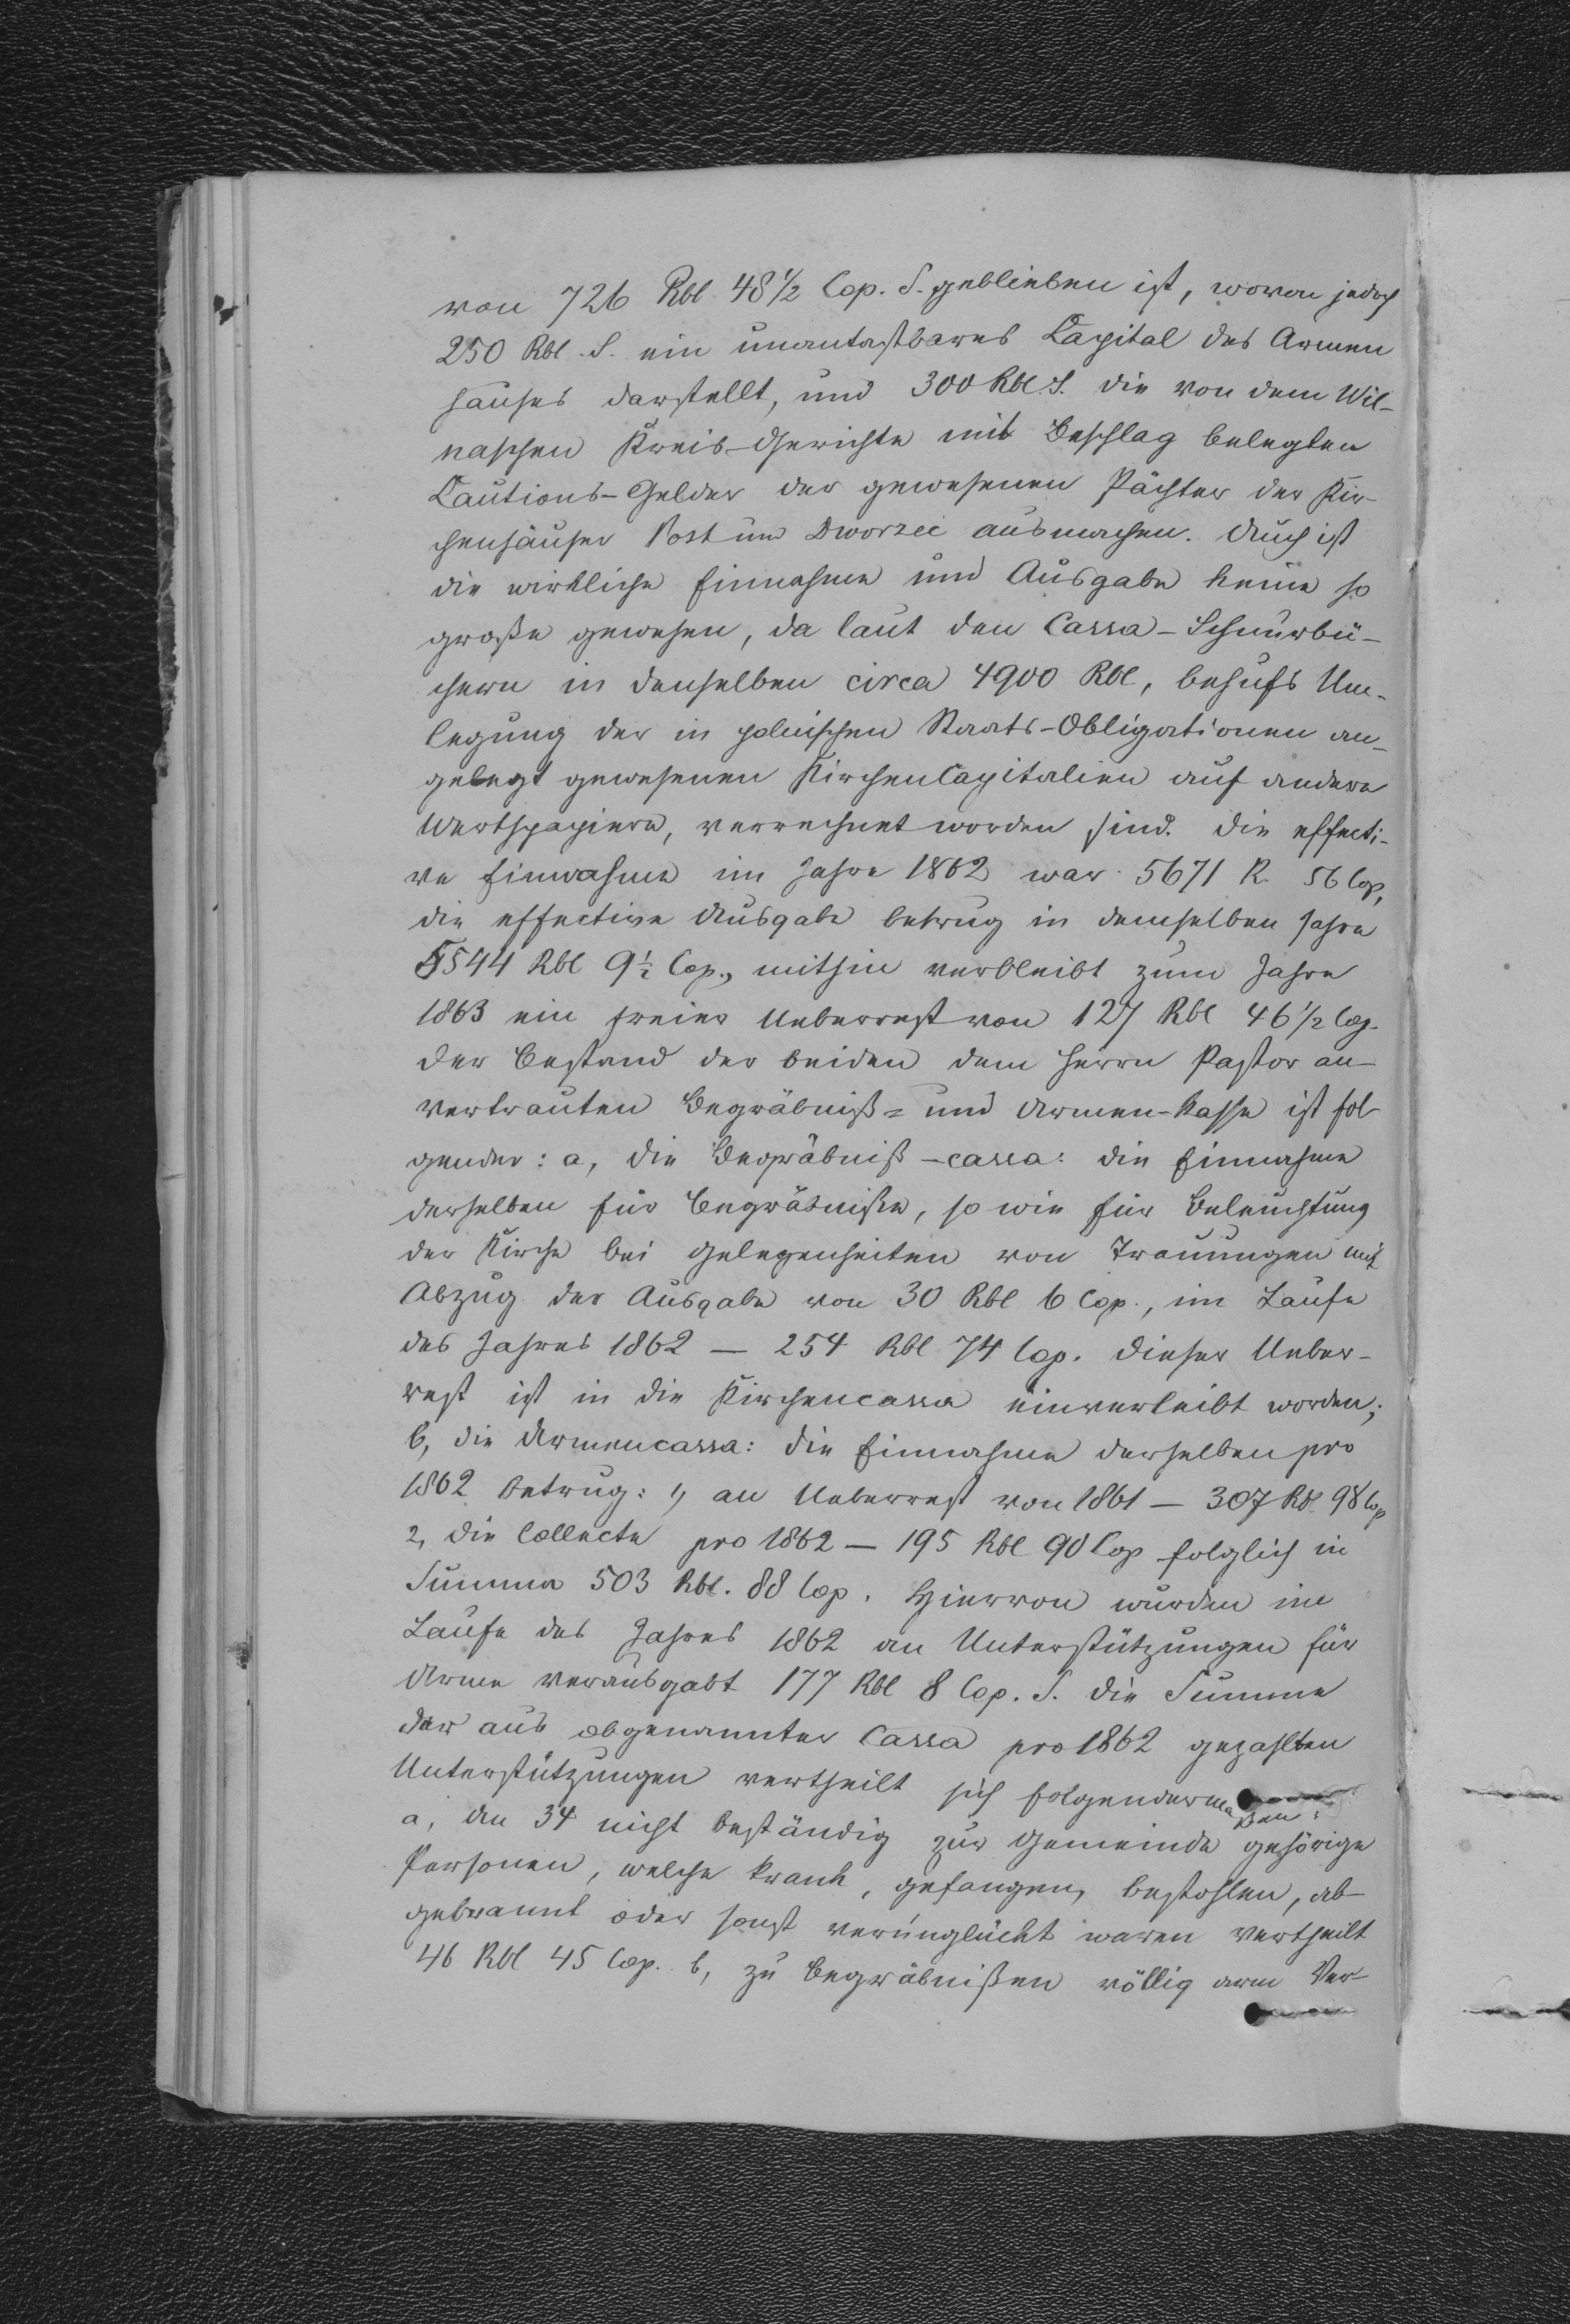 von 726 Rbl 48 1/2 Cop. S. geblieben ist, wovon jedoch
250 Rbl. S. ein unantastbares Capital des Armen
hauses darstellt, und 300 Rbl. S. die von dem Wil-
naschen Kreis-Gerichte mit Beschlag belegten
Cautions-Gelder der gewesenen Pächter der Kir-
chenhäuser Post und Dworzec ausmachen. Auch ist
die wirkliche Einnahme und Ausgabe keine so
große gewesen, da laut den Cassa-Schnurbü-
chern in denselben circa 4900 Rbl, behufs Um-
legung der in polnischen Staats-Obligationen an-
gelegt gewesenen KirchenCapitalien auf andere
Werthpapiere, verrechnet worden sind. Die effecti-
ve Einnahme im Jahre 1862 war 5671 R. 56 Cop,
die effective Ausgabe betrug in demselben Jahre
5544 Rbl 9 1/2 Cop., mithin verbleibt zum Jahre
1863 ein freier Ueberrest von 127 Rbl 46 1/2 Cop.
Der Bestand der beiden dem Herrn Pastor an-
vertrauten Begräbniß= und Armen-Kasse ist fol-
gender: a, die Begräbniß-cassa: die Einnahme
derselben für Begräbniße, so wie für Beleuchtung
der Kirche bei Gelegenheiten von Trauungen mit
Abzug der Ausgabe von 30 Rbl 6 Cop., im Laufe
des Jahres 1862 — 254 Rbl 74 Cop. Dieser Ueber-
rest ist in die Kirchencassa einverleibt worden;
b, die Armencassa: die Einnahme derselben pro
1862 betrug: 1, an Ueberrest von 1861 — 307 Rbl. 98 Cop
2, die Collecte pro 1862 — 195 Rbl 90 Cop folglich in
Summa 503 Rbl. 88 Cop. Hiervon wurden im
Laufe des Jahres 1862 an Unterstützungen für
Arme verausgabt 177 Rbl 8 Cop. S. Die Summe
der aus obgenannter Cassa pro 1862 gezahlten
Unterstützungen vertheilt sich folgendermaßen:
a, An 34 nicht beständig zur Gemeinde gehörige
Personen, welche krank, gefangen, bestohlen, ab-
gebrannt oder sonst verunglückt waren vertheilt
46 Rbl 45 Cop. b, zu Begräbnißen völlig arm Ver-